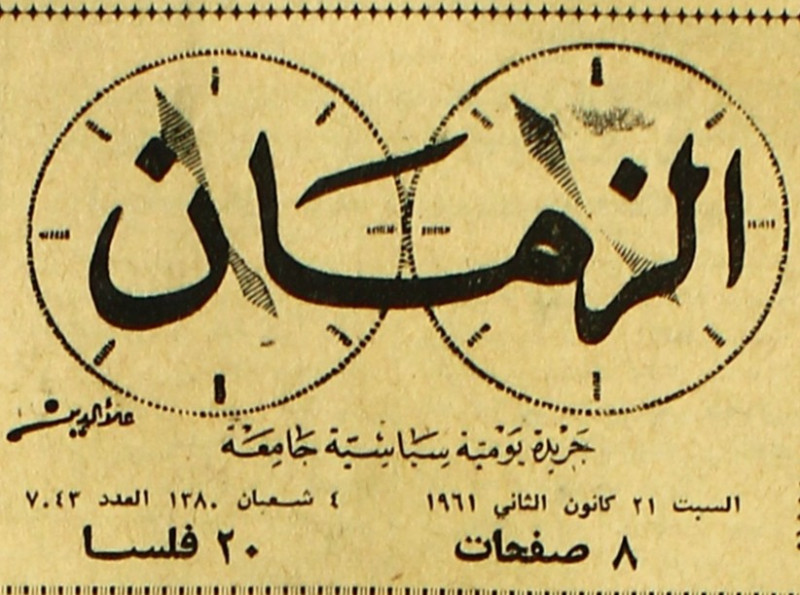 الزمان
علاءالدين
جريدة يومية سياسية جامعة
السبت ٢١ كانون الثاني ١٩٦١ ٤ شعبان ١٣٨٠ العدد ٧٠٤٣
٨ صفحات ٢٠ فلسا